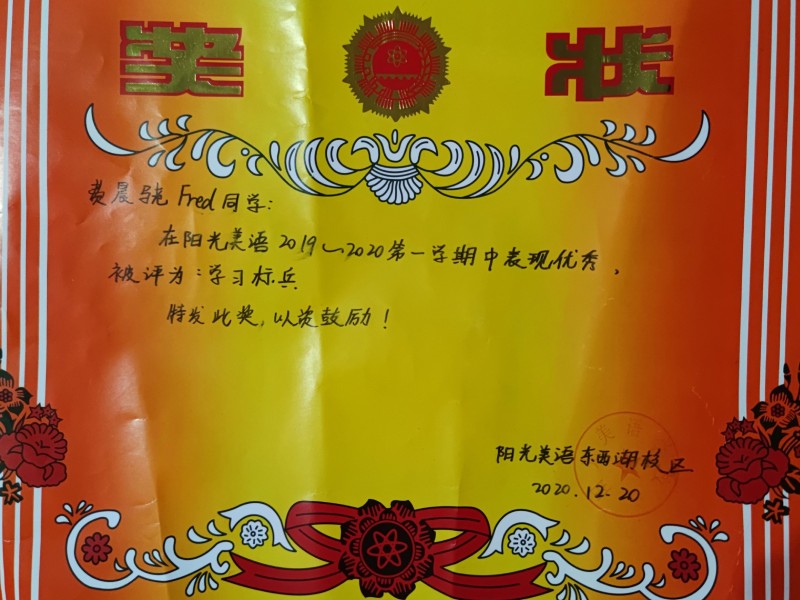 奖 状
晨骁 Fred 同学:
在阳光美语 2019~2020第一学期中表现优秀,
被评为:学习标兵
特发此奖,以资鼓励!
美语
阳光美语东西湖校区
2020.12.20